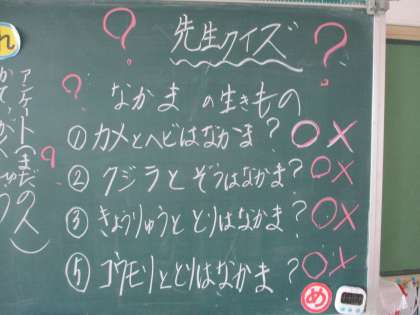 先生クイズ
? ?
? なかまの生きもの
①カメとヘビはなかま? ○×
②クジラとぞうはなかま? ○×
③きょうりゅうととりはなかま? ○×
⑤コウモリととりはなかま? ○×
め
れ
アンケート(まだの人)
9